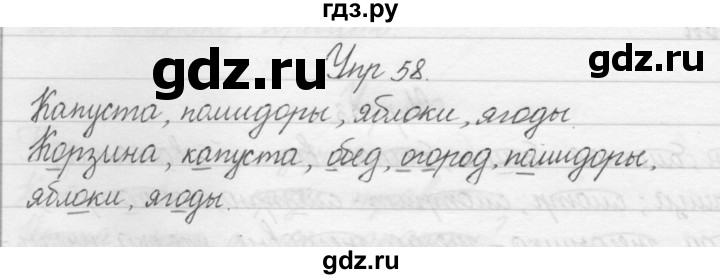 гдз.ру
gdz.ru
gdz.ru
Упр 58.
Капуста, помидоры, яблоки, ягоды.
Корзина, капуста, обед, огород, помидоры,
яблоки, ягоды.
gdz.ru